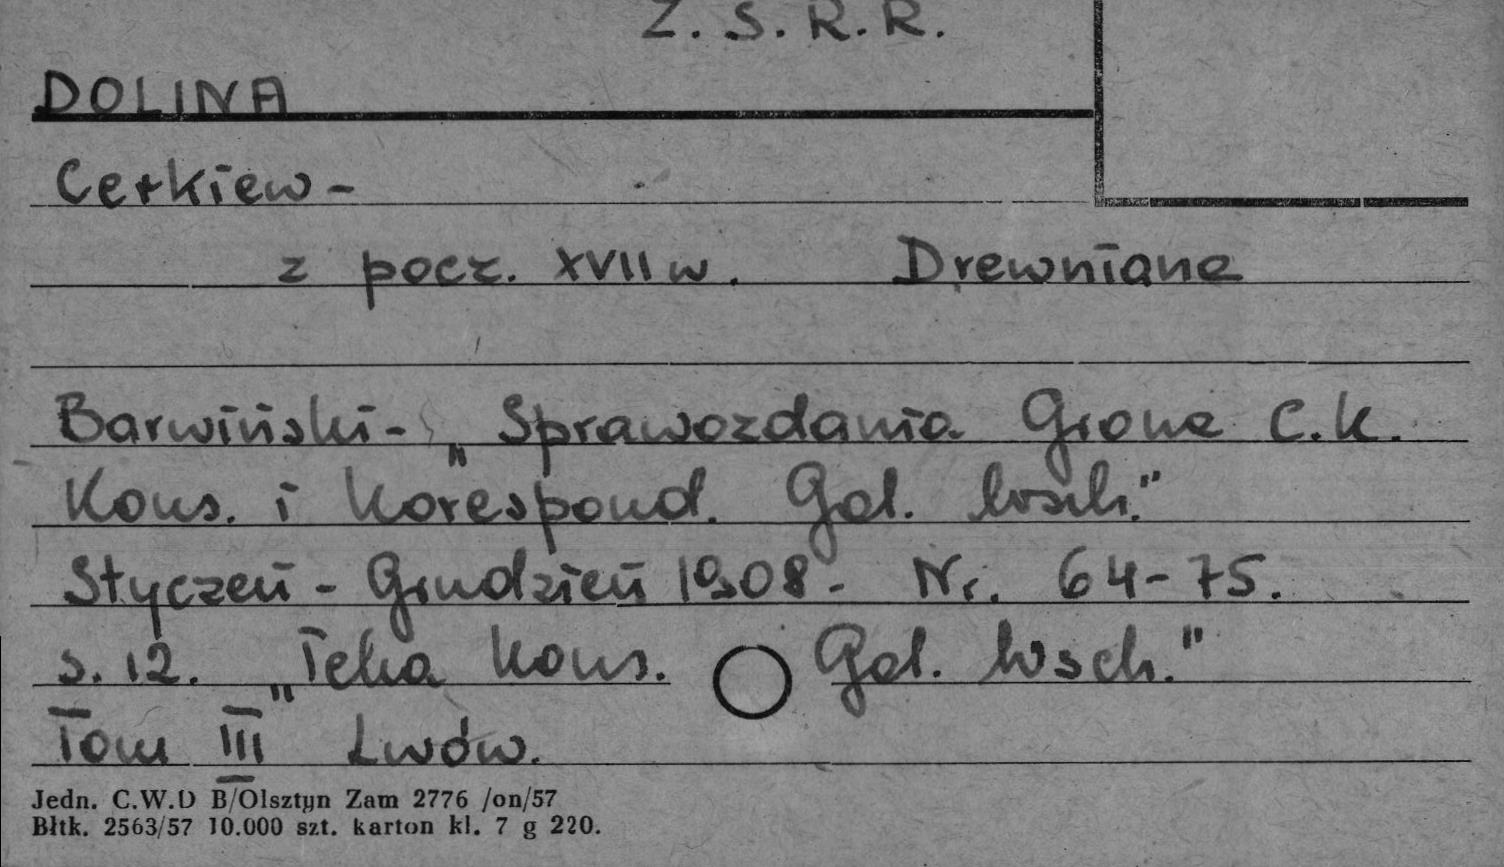 Z. S. R. R.
DOLINA
Cerkiew -
z pocz. XVII w. Drewniane
Barwiński - „Sprawozdania Grona C.K.
Kons. i Korespond. Gal. Wsch."
Styczeń - Grudzień 1908 - Nr. 64-75.
s. 12. „Teka Kons. Gal. Wsch."
Tom III Lwów.
Jedn. C.W.D B/Olsztyn Zam 2776 /on/57
Błtk. 2563/57 10.000 szt. karton kl. 7 g 220.